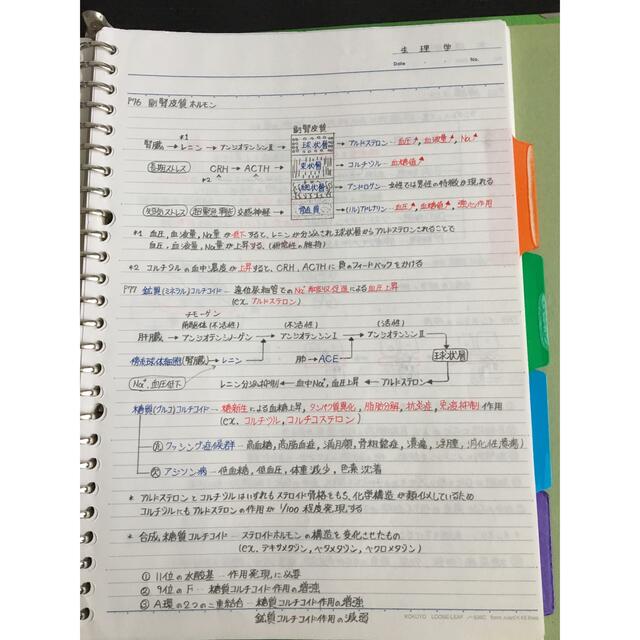 生理学
Date ・ ・ No.
P76 副腎皮質ホルモン
副腎皮質
*1
腎臓 → レニン → アンジオテンシンⅡ → 球状層 → アルドステロン… 血圧↑, 血液量↑, Na↑
長期ストレス CRH → ACTH → 束状層 → コルチゾル… 血糖値↑
*2
網状層 → アンドロゲン… 女性では男性の特徴が現れる
短期ストレス 交感神経 → 髄質 → (ノル)アドレナリン… 血圧↑, 血糖値↑, 強心作用
*1 血圧, 血液量, Na量が低下すると, レニンが分泌され球状層からアルドステロンされることで
血圧, 血液量, Na量が上昇する. (恒常性の維持)
*2 コルチゾルの血中濃度が上昇すると, CRH, ACTHに負のフィードバックをかける
P77 鉱質(ミネラル)コルチコイド… 遠位尿細管でのNa⁺再吸収促進による血圧上昇
(ex. アルドステロン)
チモーゲン
前駆体(不活性) (不活性) (活性)
肝臓 → アンジオテンシノーゲン → アンジオテンシンⅠ → アンジオテンシンⅡ
傍糸球体細胞(腎臓) → レニン 肺 → ACE 球状層
Na⁺, 血圧低下 レニン分泌抑制 ← 血中Na⁺, 血圧上昇 ← アルドステロン
糖質(グルコ)コルチコイド… 糖新生による血糖上昇, タンパク質異化, 脂肪分解, 抗炎症, 免疫抑制作用
(ex. コルチゾル, コルチコステロン)
過 クッシング症候群… 高血糖, 高脂血症, 満月顔, 骨粗鬆症, 潰瘍, 浮腫, 消化性潰瘍)
欠 アジソン病… 低血糖, 低血圧, 体重減少, 色素沈着
* アルドステロンとコルチゾルはいずれもステロイド骨格をもち, 化学構造が類似しているため
コルチゾルにもアルドステロンの作用が 1/100 程度発現する
* 合成糖質コルチコイド… ステロイドホルモンの構造を変化させたもの
(ex. デキサメタゾン, ベタメタゾン, ベクロメタゾン)
① 11位の水酸基… 作用発現に必要
② 9位のF… 糖質コルチコイド作用の増強
③ A環の2つの二重結合… 糖質コルチコイド作用の増強
鉱質コルチコイド作用の減弱
KOKUYO LOOSE-LEAF